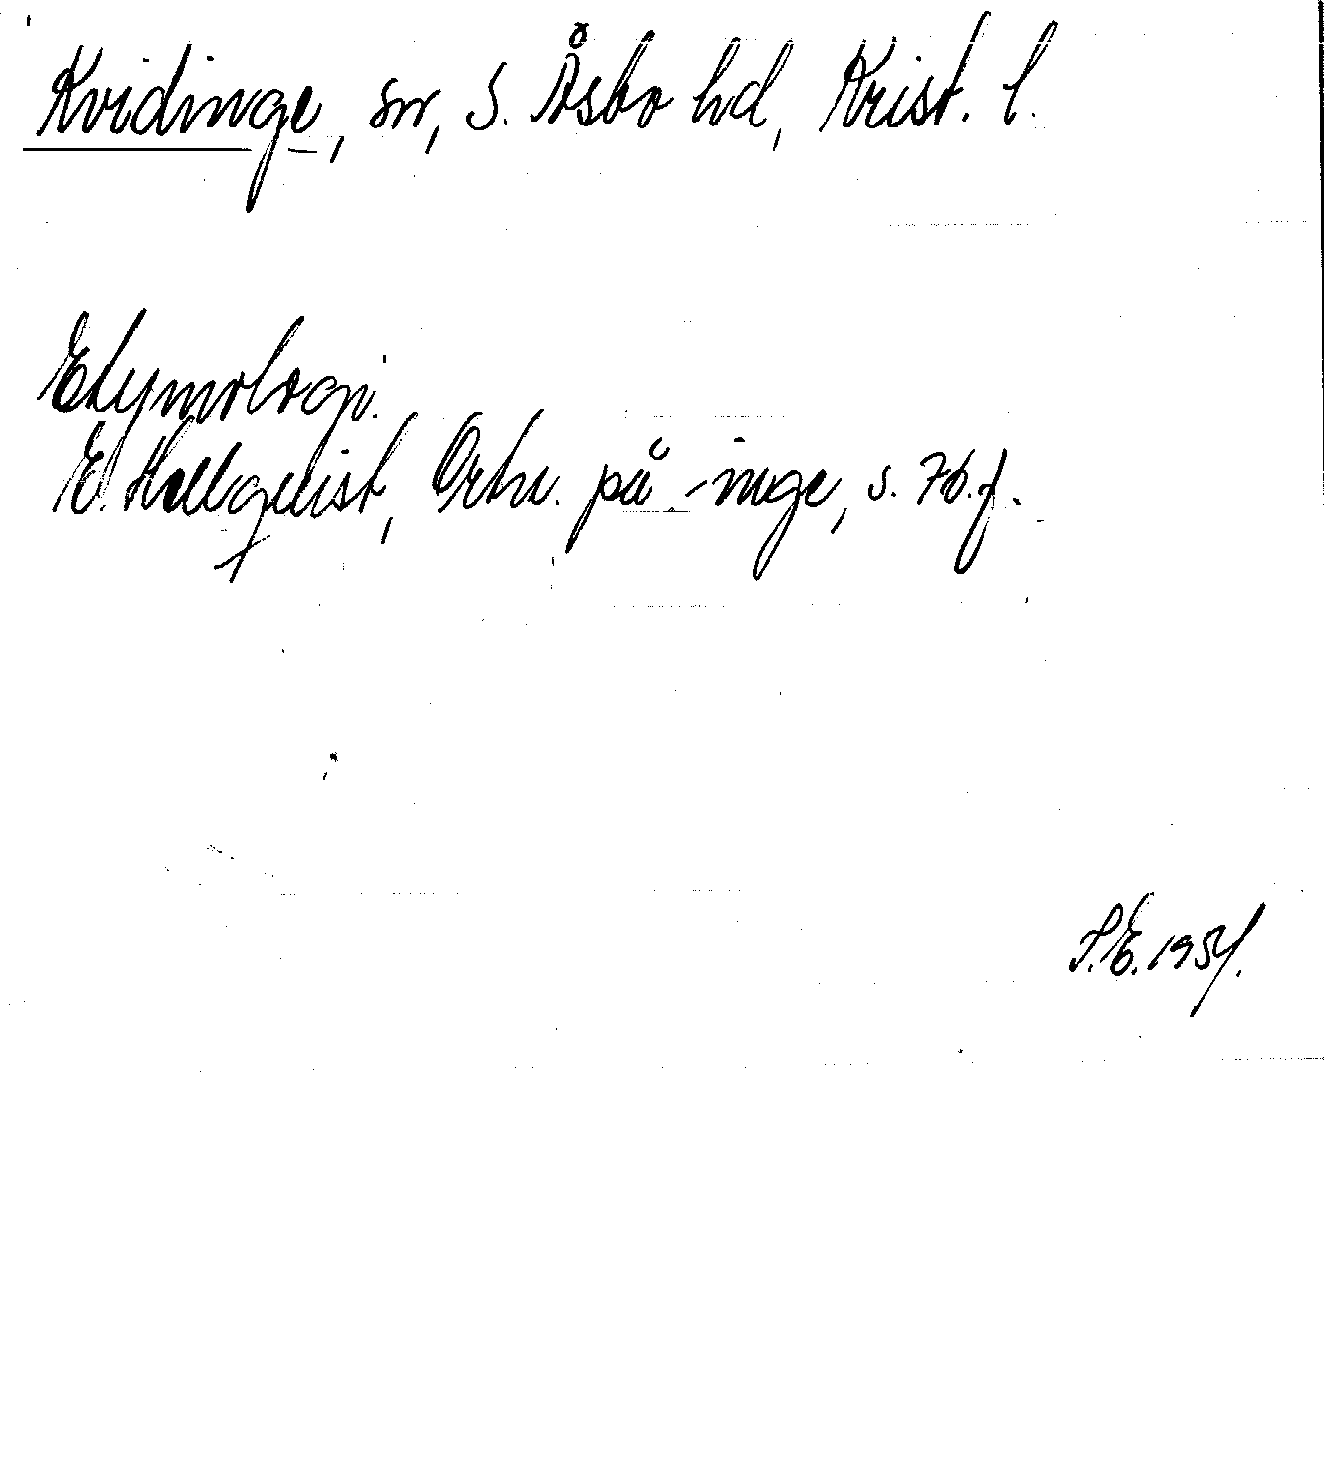 Kvidinge, sn, S. Åsbo hd, Krist. l.
Etymologi.
E. Hellquist, Ortn. på -inge, s. 76.f.
S.E. 1954.